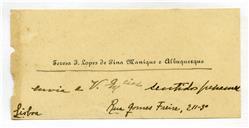 Teresa J. Lopes de Pina Manique e Albuquerque
envia a V. sentidos pesames
Lisboa
Rua Gomes Freire, 211-3º